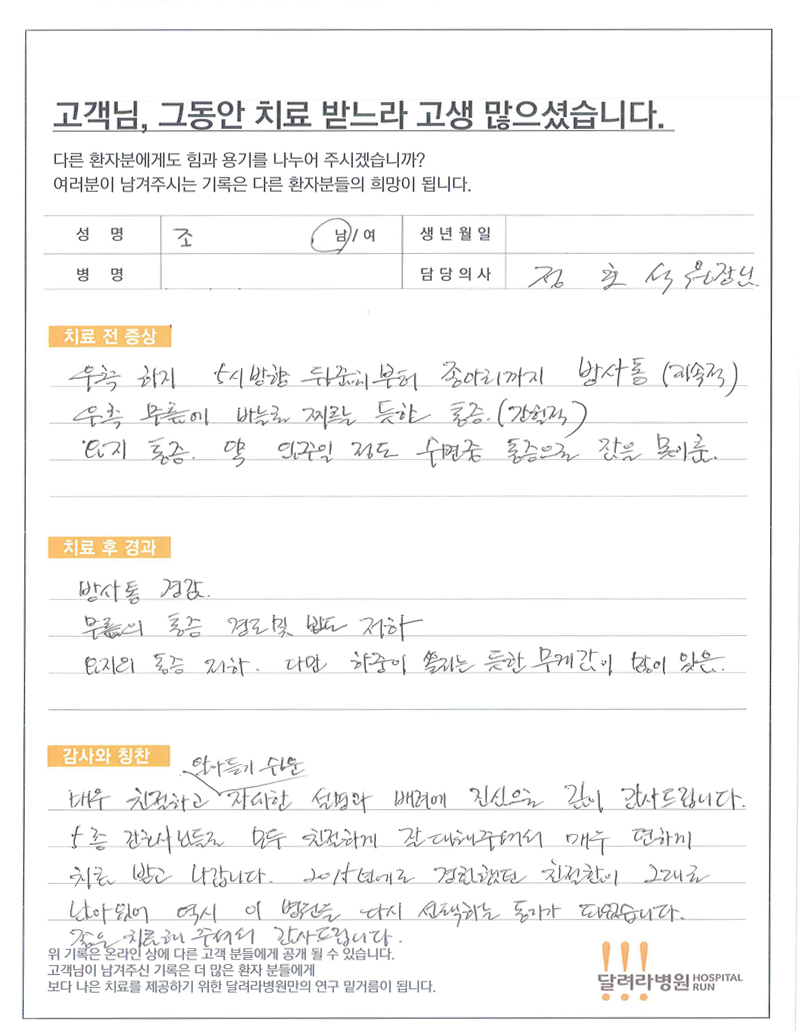 고객님, 그동안 치료 받느라 고생 많으셨습니다.
다른 환자분에게도 힘과 용기를 나누어 주시겠습니까?
여러분이 남겨주시는 기록은 다른 환자분들의 희망이 됩니다.
성 명 조 남/여 생년월일
병 명 담당의사 정호석 원장님.
치료 전 증상
우측 하지 5시방향 뒤꿈치부터 종아리까지 방사통 (지속적)
우측 무릎에 바늘로 찌르는 듯한 통증. (간헐적)
통증. 약 일주일 정도 수면중 통증으로 잠을 못이룸.
치료 후 경과
방사통 경감.
무릎의 통증 경로및 빈도 저하
통증 저하. 다만 하중이 쏠리는 듯한 무게감이 많이 있음.
감사와 칭찬
알아듣기 쉬운
매우 친절하고 자세한 설명과 배려에 진심으로 깊이 감사드립니다.
5층 간호사님들도 모두 친절하게 잘 대해주셔서 매우 편하게
치료 받고 나갑니다. 2015년에도 경험했던 친절함이 그대로
남아있어 역시 이 병원을 다시 선택하는 동기가 되었습니다.
좋은 치료해 주셔서 감사드립니다.
위 기록은 온라인 상에 다른 고객 분들에게 공개 될 수 있습니다.
고객님이 남겨주신 기록은 더 많은 환자 분들에게
보다 나은 치료를 제공하기 위한 달려라병원만의 연구 밑거름이 됩니다.
!!!
달려라병원 HOSPITAL RUN